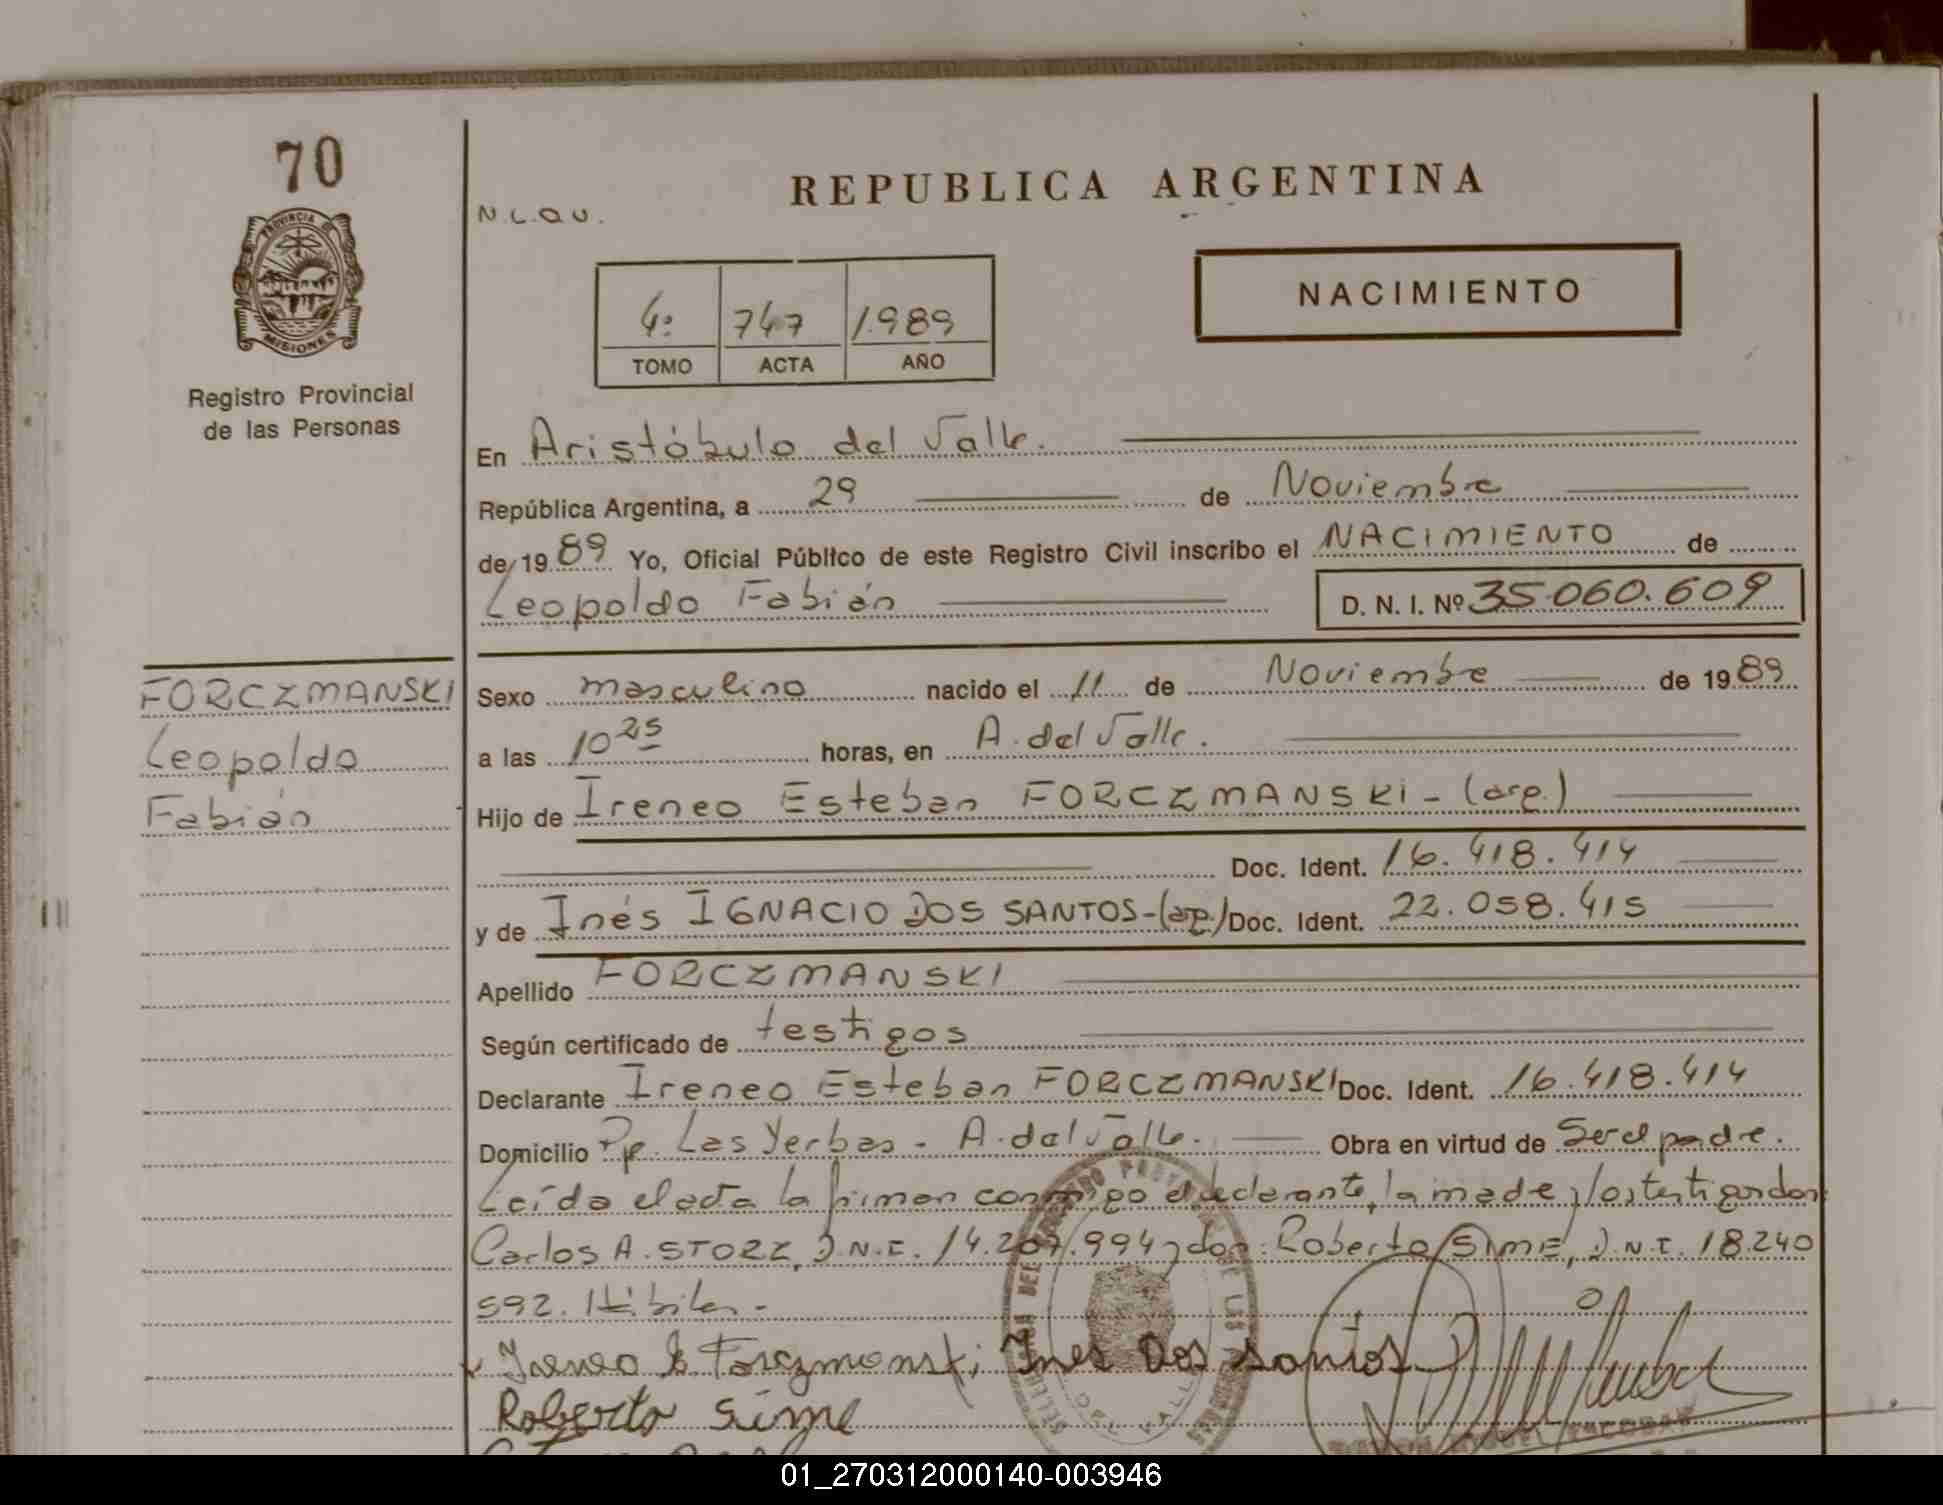 70
PROVINCIA DE
MISIONES
Registro Provincial
de las Personas
FORCZMANSKI
Leopoldo
Fabián
REPUBLICA ARGENTINA
N.L.Q.V.
NACIMIENTO
4º 747 1989
TOMO ACTA AÑO
En Aristóbulo del Valle.
República Argentina, a 29 de Noviembre
de 1989 Yo, Oficial Público de este Registro Civil inscribo el NACIMIENTO de
Leopoldo Fabián D. N. I. Nº 35.060.609
Sexo masculino nacido el 11 de Noviembre de 1989
a las 10 25 horas, en A. del Valle.
Hijo de Ireneo Esteban FORCZMANSKI - (arg.)
Doc. Ident. 16.418.414
y de Inés IGNACIO DOS SANTOS - (arg.) Doc. Ident. 22.058.415
Apellido FORCZMANSKI
Según certificado de testigos
Declarante Ireneo Esteban FORCZMANSKI Doc. Ident. 16.418.414
Domicilio Pje. Las Yerbas - A. del Valle. Obra en virtud de Ser el padre.
Leída el acta la firman conmigo el declarante, la madre y los testigos don:
Carlos A. STORZ, D.N.I. 14.207.994 y don: Roberto SIME, D.N.I. 18.240
592. Hábiles.-
Ireneo E. Forczmanski Ines Dos santos
Roberto Sime
01_270312000140-003946